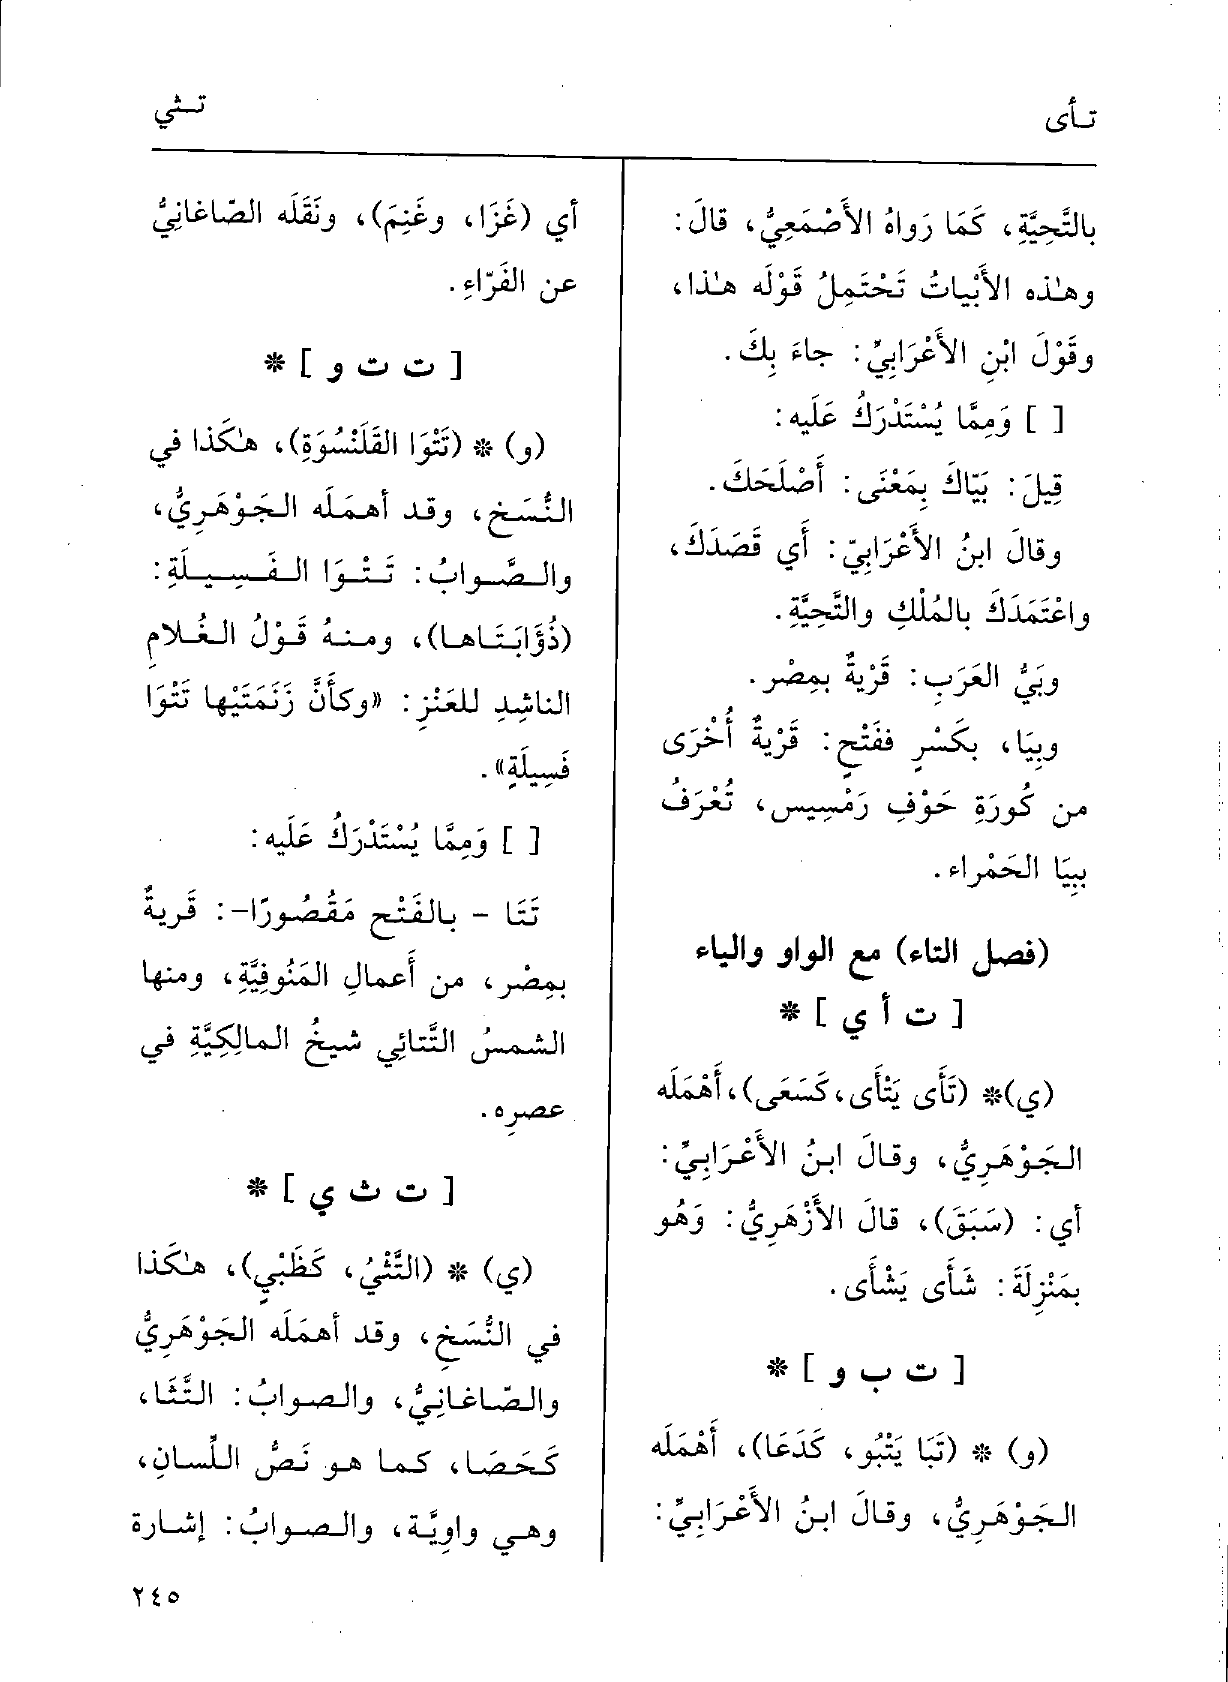 تـأى
تـثي
بالتَّحِيَّةِ، كَمَا رَواهُ الأَصْمَعِيُّ، قالَ:
وهـٰذه الأَبْياتُ تَحْتَمِلُ قَوْلَه هـٰذا،
وقَوْلَ ابْنِ الأَعْرَابِيِّ: جاءَ بِكَ.
[ ] وَمِمَّا يُسْتَدْرَكُ عَلَيه:
قِيلَ: بَيّاكَ بِمَعْنَى: أَصْلَحَكَ.
وقالَ ابنُ الأَعْرَابِيّ: أَي قَصَدَكَ،
واعْتَمَدَكَ بالمُلْكِ والتَّحِيَّةِ.
وبَيُّ العَرَبِ: قَرْيةٌ بمِصْر.
وبِيَا، بكَسْرٍ ففَتْحٍ: قَرْيةٌ أُخْرَى
من كُورَةِ حَوْفِ رَمْسِيس، تُعْرَفُ
ببِيَا الحَمْراء.
(فصل التاء) مع الواو والياء
[ ت أ ي ] *
(ي)* (تَأَى يَتْأَى، كَسَعَى)، أَهْمَلَه
الجَـوْهَـرِيُّ، وقـالَ ابـنُ الأَعْـرَابِيِّ:
أي: (سَبَقَ)، قالَ الأَزْهَرِيُّ: وَهُو
بمَنْزِلَةِ: شَأَى يَشْأَى.
[ ت ب و ] *
(و) * (تَبَا يَتْبُو، كَدَعَا)، أَهْمَلَه
الجَـوْهَـرِيُّ، وقـالَ ابـنُ الأَعْـرَابِيِّ:
أي (غَزَا، وغَنِمَ)، ونَقَلَه الصّاغانِيُّ
عن الفَرّاءِ.
[ ت ت و ] *
(و) * (تَتْوَا القَلَنْسُوَةِ)، هـٰكَذا في
النُّسَـخِ، وقـد أهـمَـلَه الجَـوْهَـرِيُّ،
والـصَّـوابُ: تَـتْـوَا الـفَـسِـيـلَةِ:
(ذُؤَابَـتَـاهـا)، ومـنـهُ قَـوْلُ الـغُـلامِ
الناشِدِ للعَنْزِ: «وكأَنَّ زَنَمَتَيْها تَتْوَا
فَسِيلَةٍ».
[ ] وَمِمَّا يُسْتَدْرَكُ عَلَيه:
تَتَا - بـالفَتْـح مَقْصُـورًا-: قَـريـةٌ
بمِصْر، من أَعمالِ المَنُوفِيَّةِ، ومنها
الشمسُ التَّتائِي شيخُ المالِكِيَّةِ في
عصرِه.
[ ت ث ي ] *
(ي) * (التَّثْيُ، كَظَبْيٍ)، هـٰكَذا
في النُّسَخِ، وقد أهمَلَه الجَوْهَرِيُّ
والصّـاغـانِيُّ، والـصـوابُ: الـتَّـثَـا،
كَـحَـصَـا، كـمـا هـو نَـصُّ اللِّسـانِ،
وهـي واوِيَّـة، والـصـوابُ: إشـارة
٢٤٥